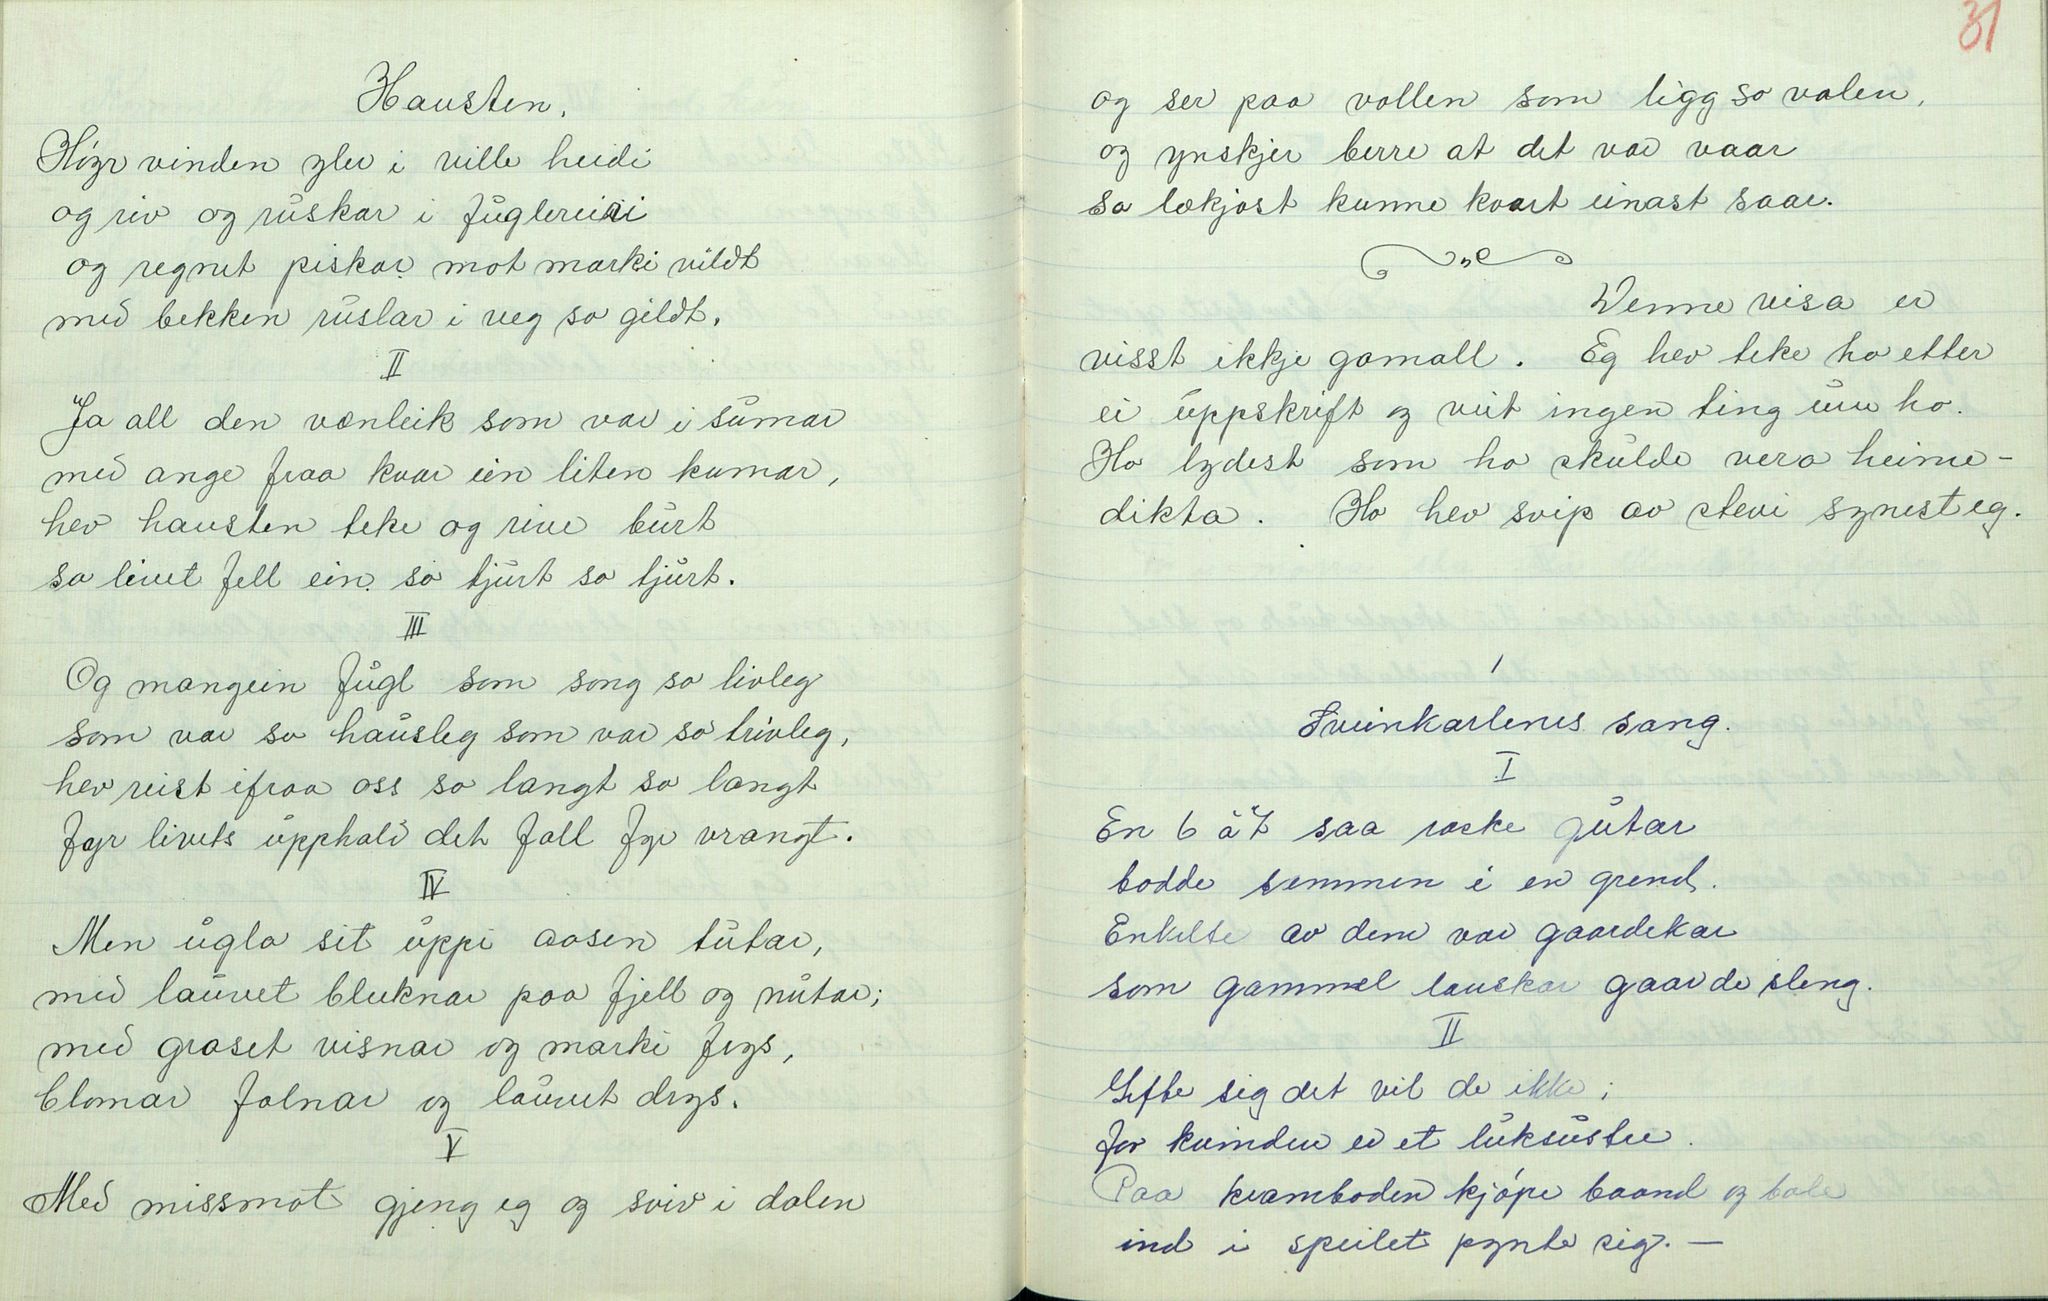 Hausten.
Høyr vinden yler i ville heidi
og riv og ruskar i fuglereiri
og regnet piskar mot marki vildt
med bekken ruslar i veg so gildt.
II
Ja all den vænleik som var i sumar
med ange fraa kvar ein liten kumar,
hev hausten teke og rive burt
so livet fell ein so tjurt so tjurt.
III
Og mangein fugl som song so livleg
som var so hausleg som var so trivleg,
hev reist ifraa oss so langt so langt
fyr livets upphald det fall fyr vrangt.
IV
Men ugla sit uppi aasen tutar,
med lauvet bleknar paa fjell og nutar;
med graset visnar og marki frys,
blomar falnar og lauvet drys.
V
Med missmot gjeng eg og sviv i dalen
31
og ser paa vollen som ligg so valen,
og ynskjer berre at det var vaar
so lækjast kunne kvart einast saar.
Denne visa er
visst ikkje gamall. Eg hev teke ho etter
ei uppskrift og veit ingen ting um ho.
Ho lydest som ho skulde vera heime-
dikta. Ho hev svip av stevi synest eg.
Sveinkarlenes sang.
I
En 6 à 7 saa raske gutar
bodde sammen i en grend.
Enkelte av dem var gaardekar
som gammel lauskar gaar de sleng.
II
Gifte sig det vil de ikke;
for kvinden er et luksustre.
Paa kramboden kjøpe baand og
ind i speilet pynte sig. —